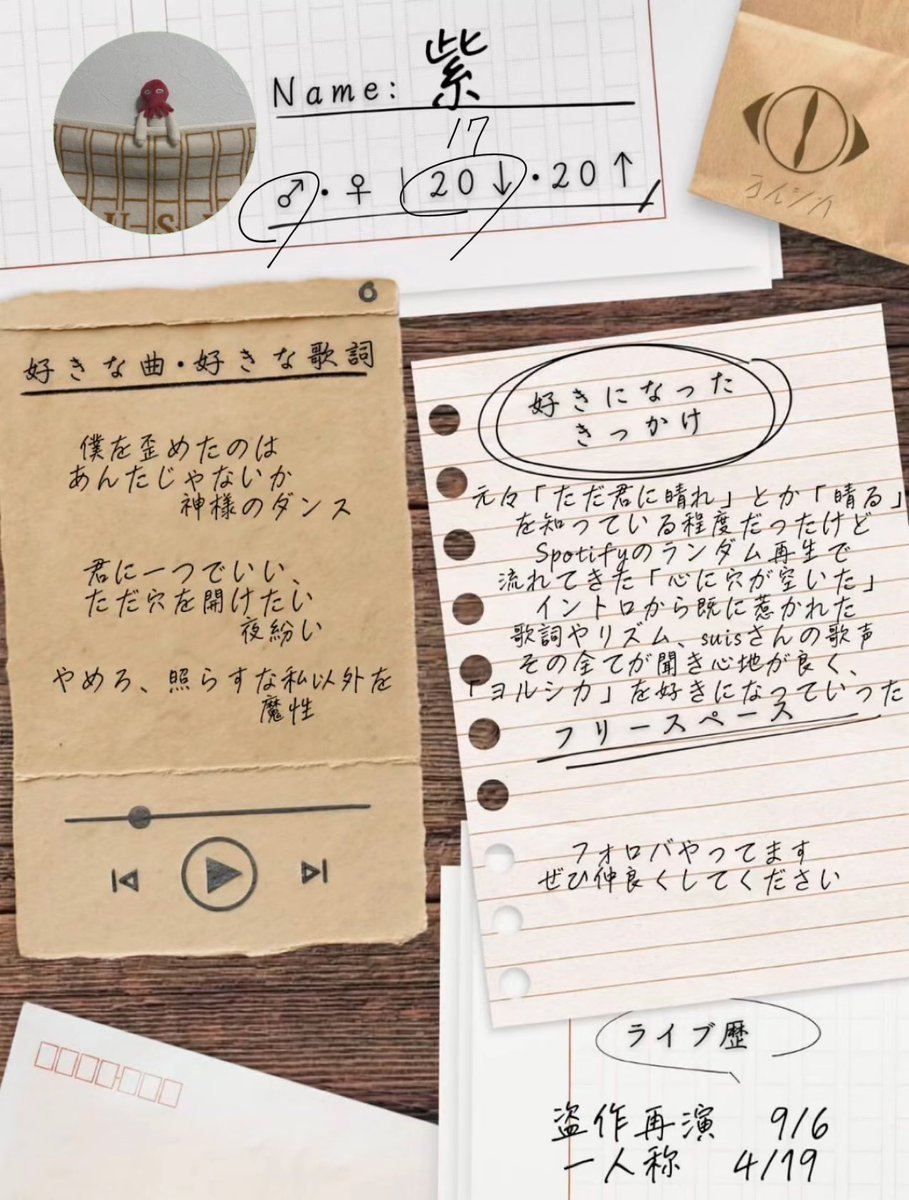 Name: 紫
17
♂・♀ | 20↓・20↑
ヨルシカ
6
好きな曲・好きな歌詞
僕を歪めたのは
あんたじゃないか
神様のダンス
君に一つでいい、
ただ穴を開けたい
夜紛い
やめろ、照らすな私以外を
魔性
好きになった
きっかけ
元々「ただ君に晴れ」とか「晴る」
を知っている程度だったけど
Spotifyのランダム再生で
流れてきた「心に穴が空いた」
イントロから既に惹かれた
歌詞やリズム、suisさんの歌声
その全てが聞き心地が良く、
「ヨルシカ」を好きになっていった
フリースペース
フォロバやってます
ぜひ仲良くしてください
ライブ歴
盗作再演 9/6
一人称 4/19